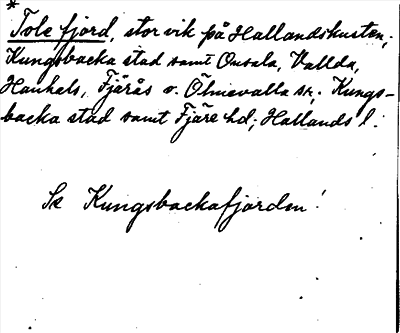 *
Tole fjord, stor vik på Hallandskusten,
Kungsbacka stad samt Onsala, Vallda,
Hanhals, Fjärås o. Ölmevalla sn; Kungs-
backa stad samt Fjäre hd; Hallands l.
Se Kungsbackafjorden!